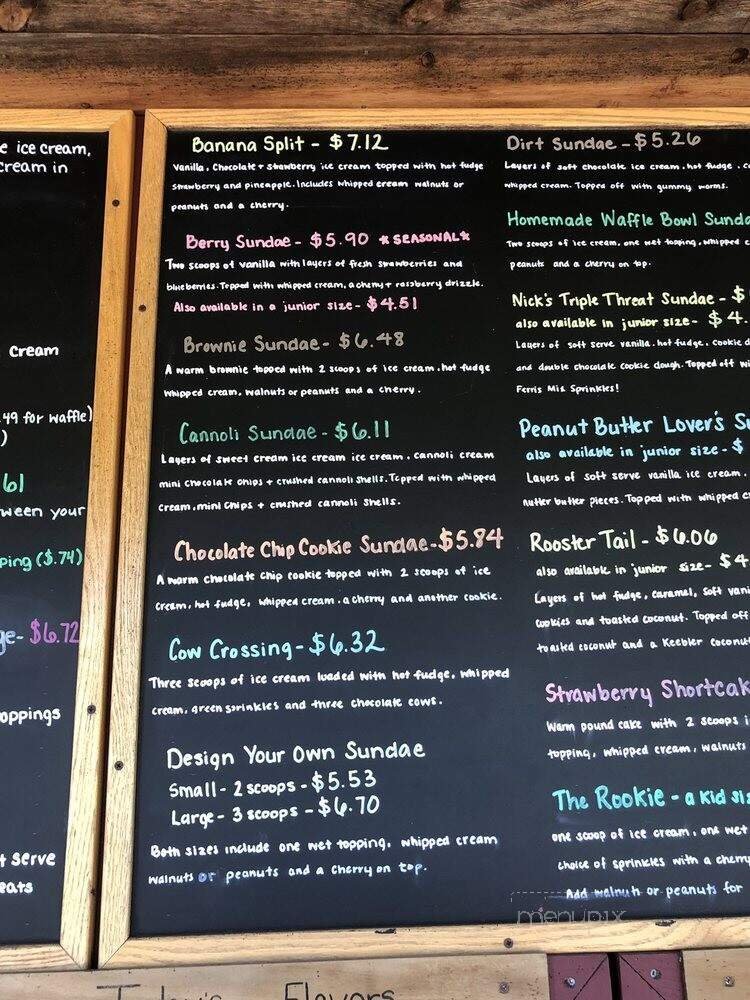 e ice cream,
cream in
cream
.49 for waffle)
)
61
ween your
ping ($.74)
ge- $6.72
oppings
t serve
eats
Banana Split - $7.12
Vanilla, Chocolate + strawberry ice cream topped with hot fudge
strawberry and pineapple. Includes whipped cream walnuts or
peanuts and a cherry.
Berry Sundae - $5.90 *SEASONAL*
Two scoops of vanilla with layers of fresh strawberries and
blueberries. Topped with whipped cream, a cherry + raspberry drizzle.
Also available in a junior size - $4.51
Brownie Sundae - $6.48
A warm brownie topped with 2 scoops of ice cream, hot fudge
whipped cream, walnuts or peanuts and a cherry.
Cannoli Sundae - $6.11
Layers of sweet cream ice cream ice cream, cannoli cream
mini chocolate chips + crushed cannoli shells. Topped with whipped
cream, mini chips + crushed cannoli shells.
Chocolate Chip Cookie Sundae - $5.84
A warm chocolate chip cookie topped with 2 scoops of ice
cream, hot fudge, whipped cream, a cherry and another cookie.
Cow Crossing - $6.32
Three scoops of ice cream loaded with hot fudge, whipped
cream, green sprinkles and three chocolate cows.
Design Your Own Sundae
Small - 2 scoops - $5.53
Large - 3 scoops - $6.70
Both sizes include one wet topping, whipped cream
walnuts or peanuts and a cherry on top.
Dirt Sundae - $5.26
Layers of soft chocolate ice cream, hot fudge, c
whipped cream. Topped off with gummy worms.
Homemade Waffle Bowl Sunda
Two scoops of ice cream, one wet topping, whipped c
peanuts and a cherry on top.
Nick's Triple Threat Sundae - $
also available in junior size - $4.
Layers of soft serve vanilla, hot fudge, cookie d
and double chocolate cookie dough. Topped off wi
Ferris Mix Sprinkles!
Peanut Butter Lover's Su
also available in junior size - $
Layers of soft serve vanilla ice cream,
nutter butter pieces. Topped with whipped c
Rooster Tail - $6.06
also available in junior size - $4
Layers of hot fudge, caramel, soft vani
cookies and toasted coconut. Topped off
toasted coconut and a Keebler coconut
Strawberry Shortcak
Warm pound cake with 2 scoops i
topping, whipped cream, walnuts
The Rookie - a kid siz
one scoop of ice cream, one wet
choice of sprinkles with a cherry
Add walnuts or peanuts for
menupix
Today's Flavors